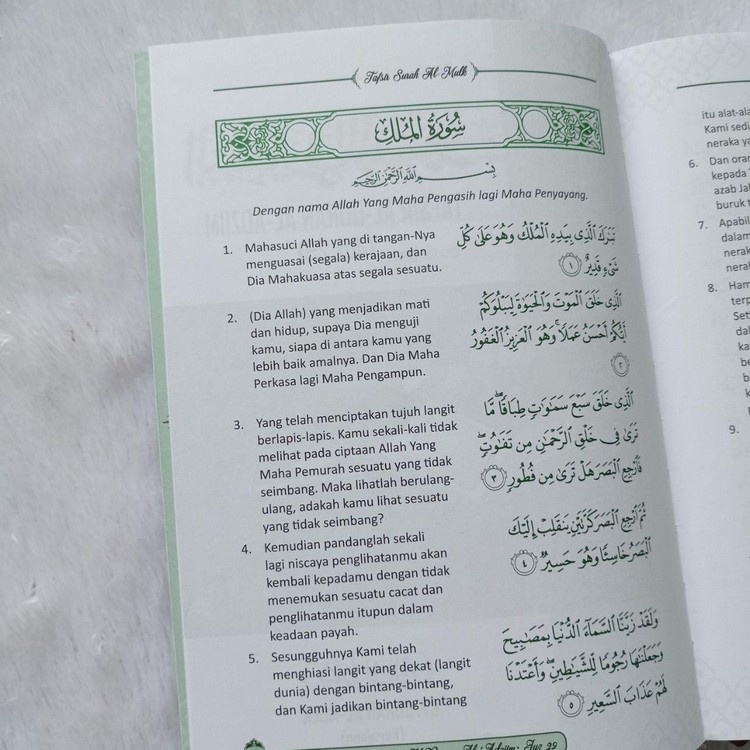 Tafsir Surah Al-Mulk
سُورَةُ الْمُلْكِ
بِسْمِ اللَّهِ الرَّحْمَٰنِ الرَّحِيمِ
Dengan nama Allah Yang Maha Pengasih lagi Maha Penyayang.
1. Mahasuci Allah yang di tangan-Nya
menguasai (segala) kerajaan, dan
Dia Mahakuasa atas segala sesuatu.
تَبَٰرَكَ الَّذِي بِيَدِهِ الْمُلْكُ وَهُوَ عَلَىٰ كُلِّ
شَيْءٍ قَدِيرٌ ١
2. (Dia Allah) yang menjadikan mati
dan hidup, supaya Dia menguji
kamu, siapa di antara kamu yang
lebih baik amalnya. Dan Dia Maha
Perkasa lagi Maha Pengampun.
الَّذِي خَلَقَ الْمَوْتَ وَالْحَيَوٰةَ لِيَبْلُوَكُمْ
أَيُّكُمْ أَحْسَنُ عَمَلًا ۚ وَهُوَ الْعَزِيزُ الْغَفُورُ
٢
3. Yang telah menciptakan tujuh langit
berlapis-lapis. Kamu sekali-kali tidak
melihat pada ciptaan Allah Yang
Maha Pemurah sesuatu yang tidak
seimbang. Maka lihatlah berulang-
ulang, adakah kamu lihat sesuatu
yang tidak seimbang?
الَّذِي خَلَقَ سَبْعَ سَمَٰوَٰتٍ طِبَاقًا ۖ مَّا
تَرَىٰ فِي خَلْقِ الرَّحْمَٰنِ مِن تَفَٰوُتٍ ۖ
فَارْجِعِ الْبَصَرَ هَلْ تَرَىٰ مِن فُطُورٍ ٣
4. Kemudian pandanglah sekali
lagi niscaya penglihatanmu akan
kembali kepadamu dengan tidak
menemukan sesuatu cacat dan
penglihatanmu itupun dalam
keadaan payah.
ثُمَّ ارْجِعِ الْبَصَرَ كَرَّتَيْنِ يَنقَلِبْ إِلَيْكَ
الْبَصَرُ خَاسِئًا وَهُوَ حَسِيرٌ ٤
5. Sesungguhnya Kami telah
menghiasi langit yang dekat (langit
dunia) dengan bintang-bintang,
dan Kami jadikan bintang-bintang
وَلَقَدْ زَيَّنَّا السَّمَاءَ الدُّنْيَا بِمَصَٰبِيحَ
وَجَعَلْنَٰهَا رُجُومًا لِّلشَّيَٰطِينِ ۖ وَأَعْتَدْنَا
لَهُمْ عَذَابَ السَّعِيرِ ٥
Juz 29
itu alat-ala
Kami sedi
neraka ya
6. Dan oran
kepada
azab Jah
buruk t
7. Apabil
dalam
nerak
neral
8. Ham
terp
Seti
dal
ka
be
b
k
9.